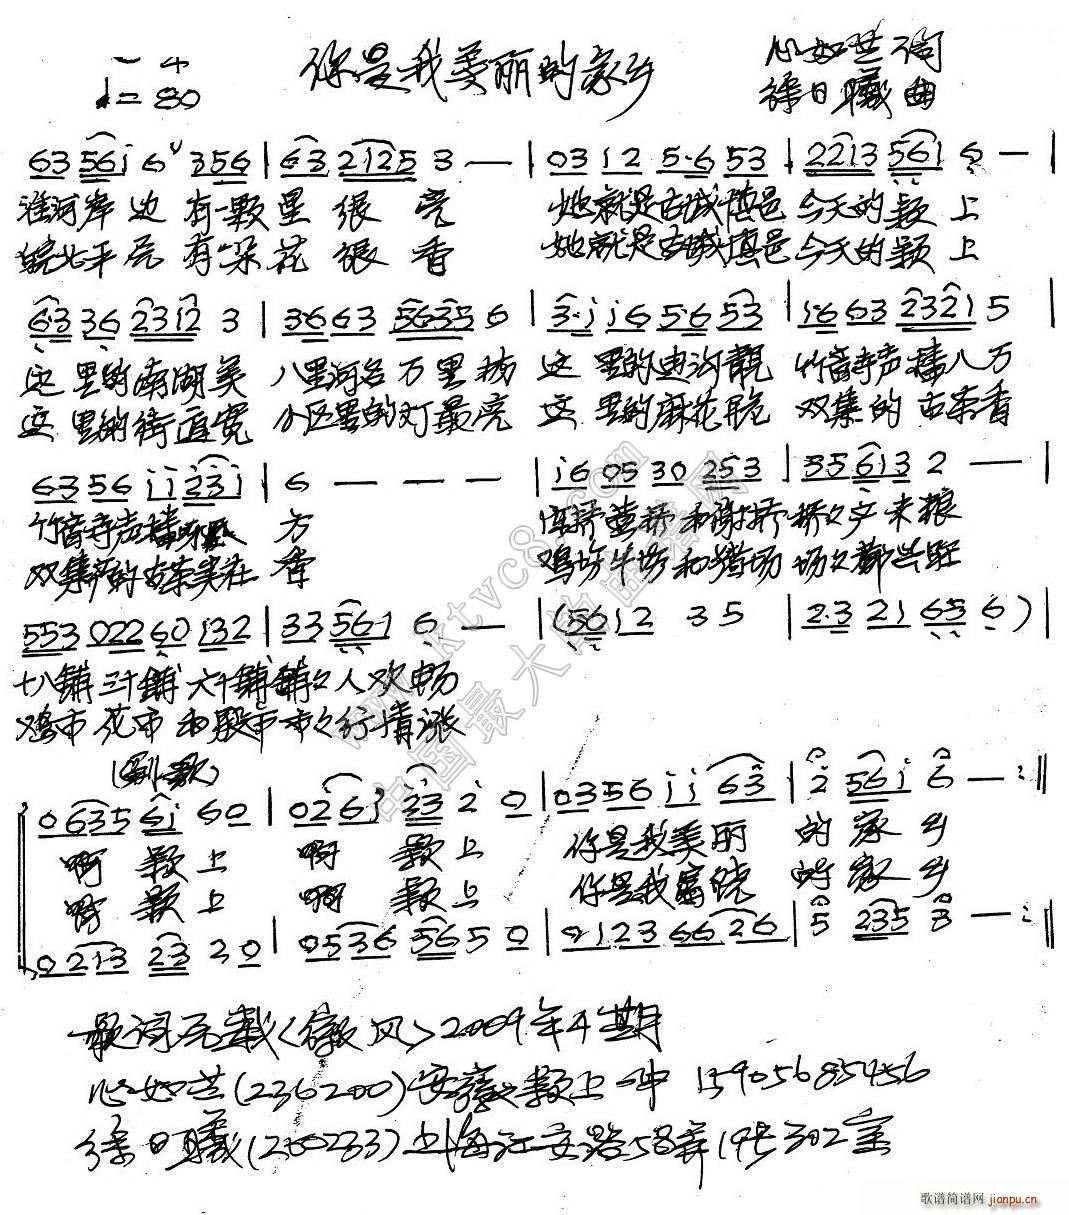 你是我美丽的家乡
心如芷词
♩=80
徐日曦曲
63 56i 6 356 | 63 2125 3 — | 03 12 5·6 53 | 2213 561 6 — |
淮河岸边有一颗星很亮 她就是古城慎邑今天的颍上
皖北平原有一朵花很香 她就是古城慎邑今天的颍上
6·3 36 2312 3 | 3·6 63 5635 6 | 3·i i6 5·6 53 | 1·6 63 2321 5 |
这里的南湖美 八里河名万里扬 这里的迪沟靓 竹音寺声播八方
这里的街道宽 小区里的灯最亮 这里的麻花脆 双集的古茶香
63 56 ii 23i | 6 — — — | i6 05 30 253 | 35 613 2 — |
竹音寺声播 方 和谢桥桥々产米粮
双集的古茶实在香 鸡场牛场和猪场场々都兴旺
553 022 60 132 | 33 561 6 — | (5612 3 5 | 2·3 21 65 6) |
十八铺三十铺六十铺铺々人欢畅
鸡市花市和 市市々行情涨
(副歌)
0635 6i 60 | 026i 23 2 0 | 0356 ii 63 | 2 56i 6 — :‖
啊颍上 啊颍上 你是我美丽的家乡
啊颍上 啊颍上 你是我富饶的家乡
0213 23 2 0 | 0536 56 5 0 | 0123 66 26 | 5 235 3 — :‖
歌词原载《徽风》2009年4期
心如芷(236200)安徽颍上一中 15905685456
徐日曦(200233)上海江安路58弄19号302室
www.ktvc8.com
中国最大的曲谱网
歌谱简谱网 jianpu.cn